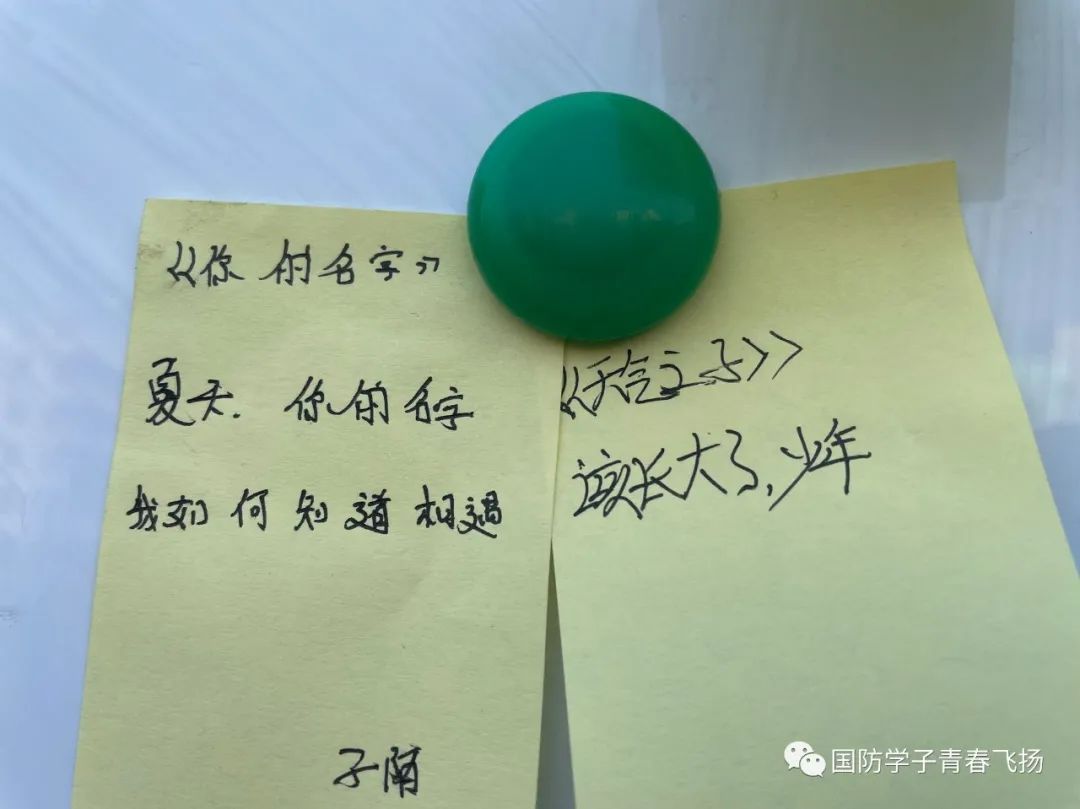 《你的名字》
夏天.你的名字
我如何知道相遇
子
《天气之子》
该长大了,少年
国防学子青春飞扬